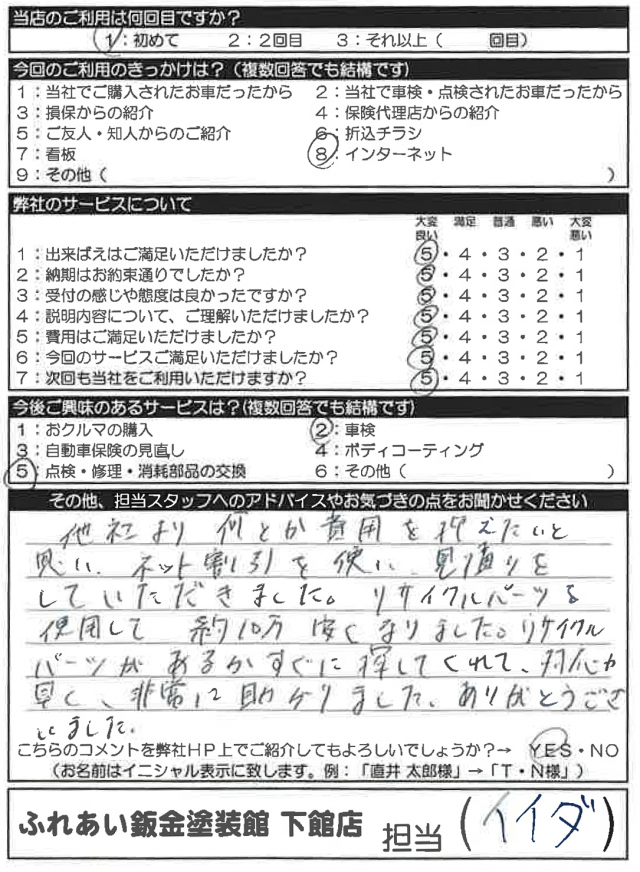 当店のご利用は何回目ですか?
1:初めて 2:2回目 3:それ以上( 回目)
今回のご利用のきっかけは?(複数回答でも結構です)
1:当社でご購入されたお車だったから 2:当社で車検・点検されたお車だったから
3:損保からの紹介 4:保険代理店からの紹介
5:ご友人・知人からのご紹介 6:折込チラシ
7:看板 8:インターネット
9:その他( )
弊社のサービスについて
大変良い 満足 普通 悪い 大変悪い
1:出来ばえはご満足いただけましたか? 5・4・3・2・1
2:納期はお約束通りでしたか? 5・4・3・2・1
3:受付の感じや態度は良かったですか? 5・4・3・2・1
4:説明内容について、ご理解いただけましたか? 5・4・3・2・1
5:費用はご満足いただけましたか? 5・4・3・2・1
6:今回のサービスご満足いただけましたか? 5・4・3・2・1
7:次回も当社をご利用いただけますか? 5・4・3・2・1
今後ご興味のあるサービスは?(複数回答でも結構です)
1:おクルマの購入 2:車検
3:自動車保険の見直し 4:ボディコーティング
5:点検・修理・消耗部品の交換 6:その他( )
その他、担当スタッフへのアドバイスやお気づきの点をお聞かせください
他社より何とか費用を抑えたいと
思い、ネット割引を使い、見積りを
していただきました。リサイクルパーツを
使用して約10万安くなりました。リサイクル
パーツがあるかすぐに探してくれて、対応が
早く、非常に助かりました。ありがとうござ
いました。
こちらのコメントを弊社HP上でご紹介してもよろしいでしょうか?→ YES・NO
(お名前はイニシャル表示に致します。例:「直井 太郎様」→「T・N様」)
ふれあい鈑金塗装館 下館店 担当(イイダ)